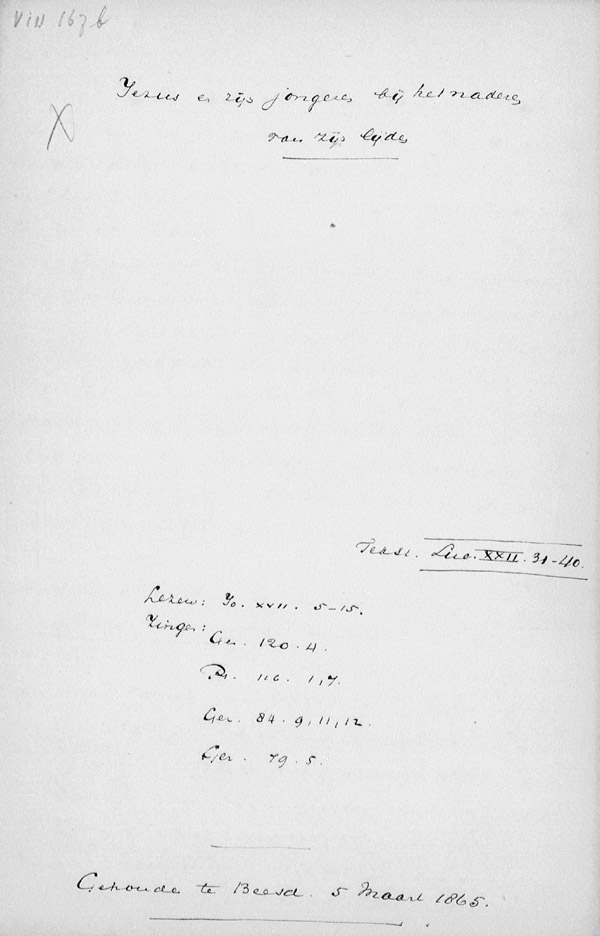 VIN 167b
X
Jezus en zijn jongeren bij het naderen
van zijn lijden
Tekst. Luc. XXII. 31-40.
Lezen: Jo. XVII. 5-15.
Zingen:
Gez. 120. 4.
Ps. 116. 1, 7.
Gez. 84. 9, 11, 12.
Gez. 79. 5.
Gehouden te Beesd. 5 Maart 1865.